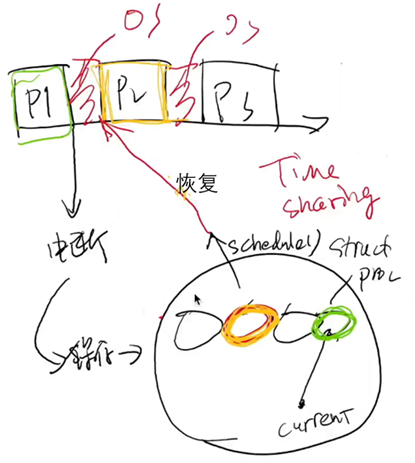 OS
OS
P1
P2
P3
恢复
Time
sharing
中断
schedule()
struct
proc
保存
current